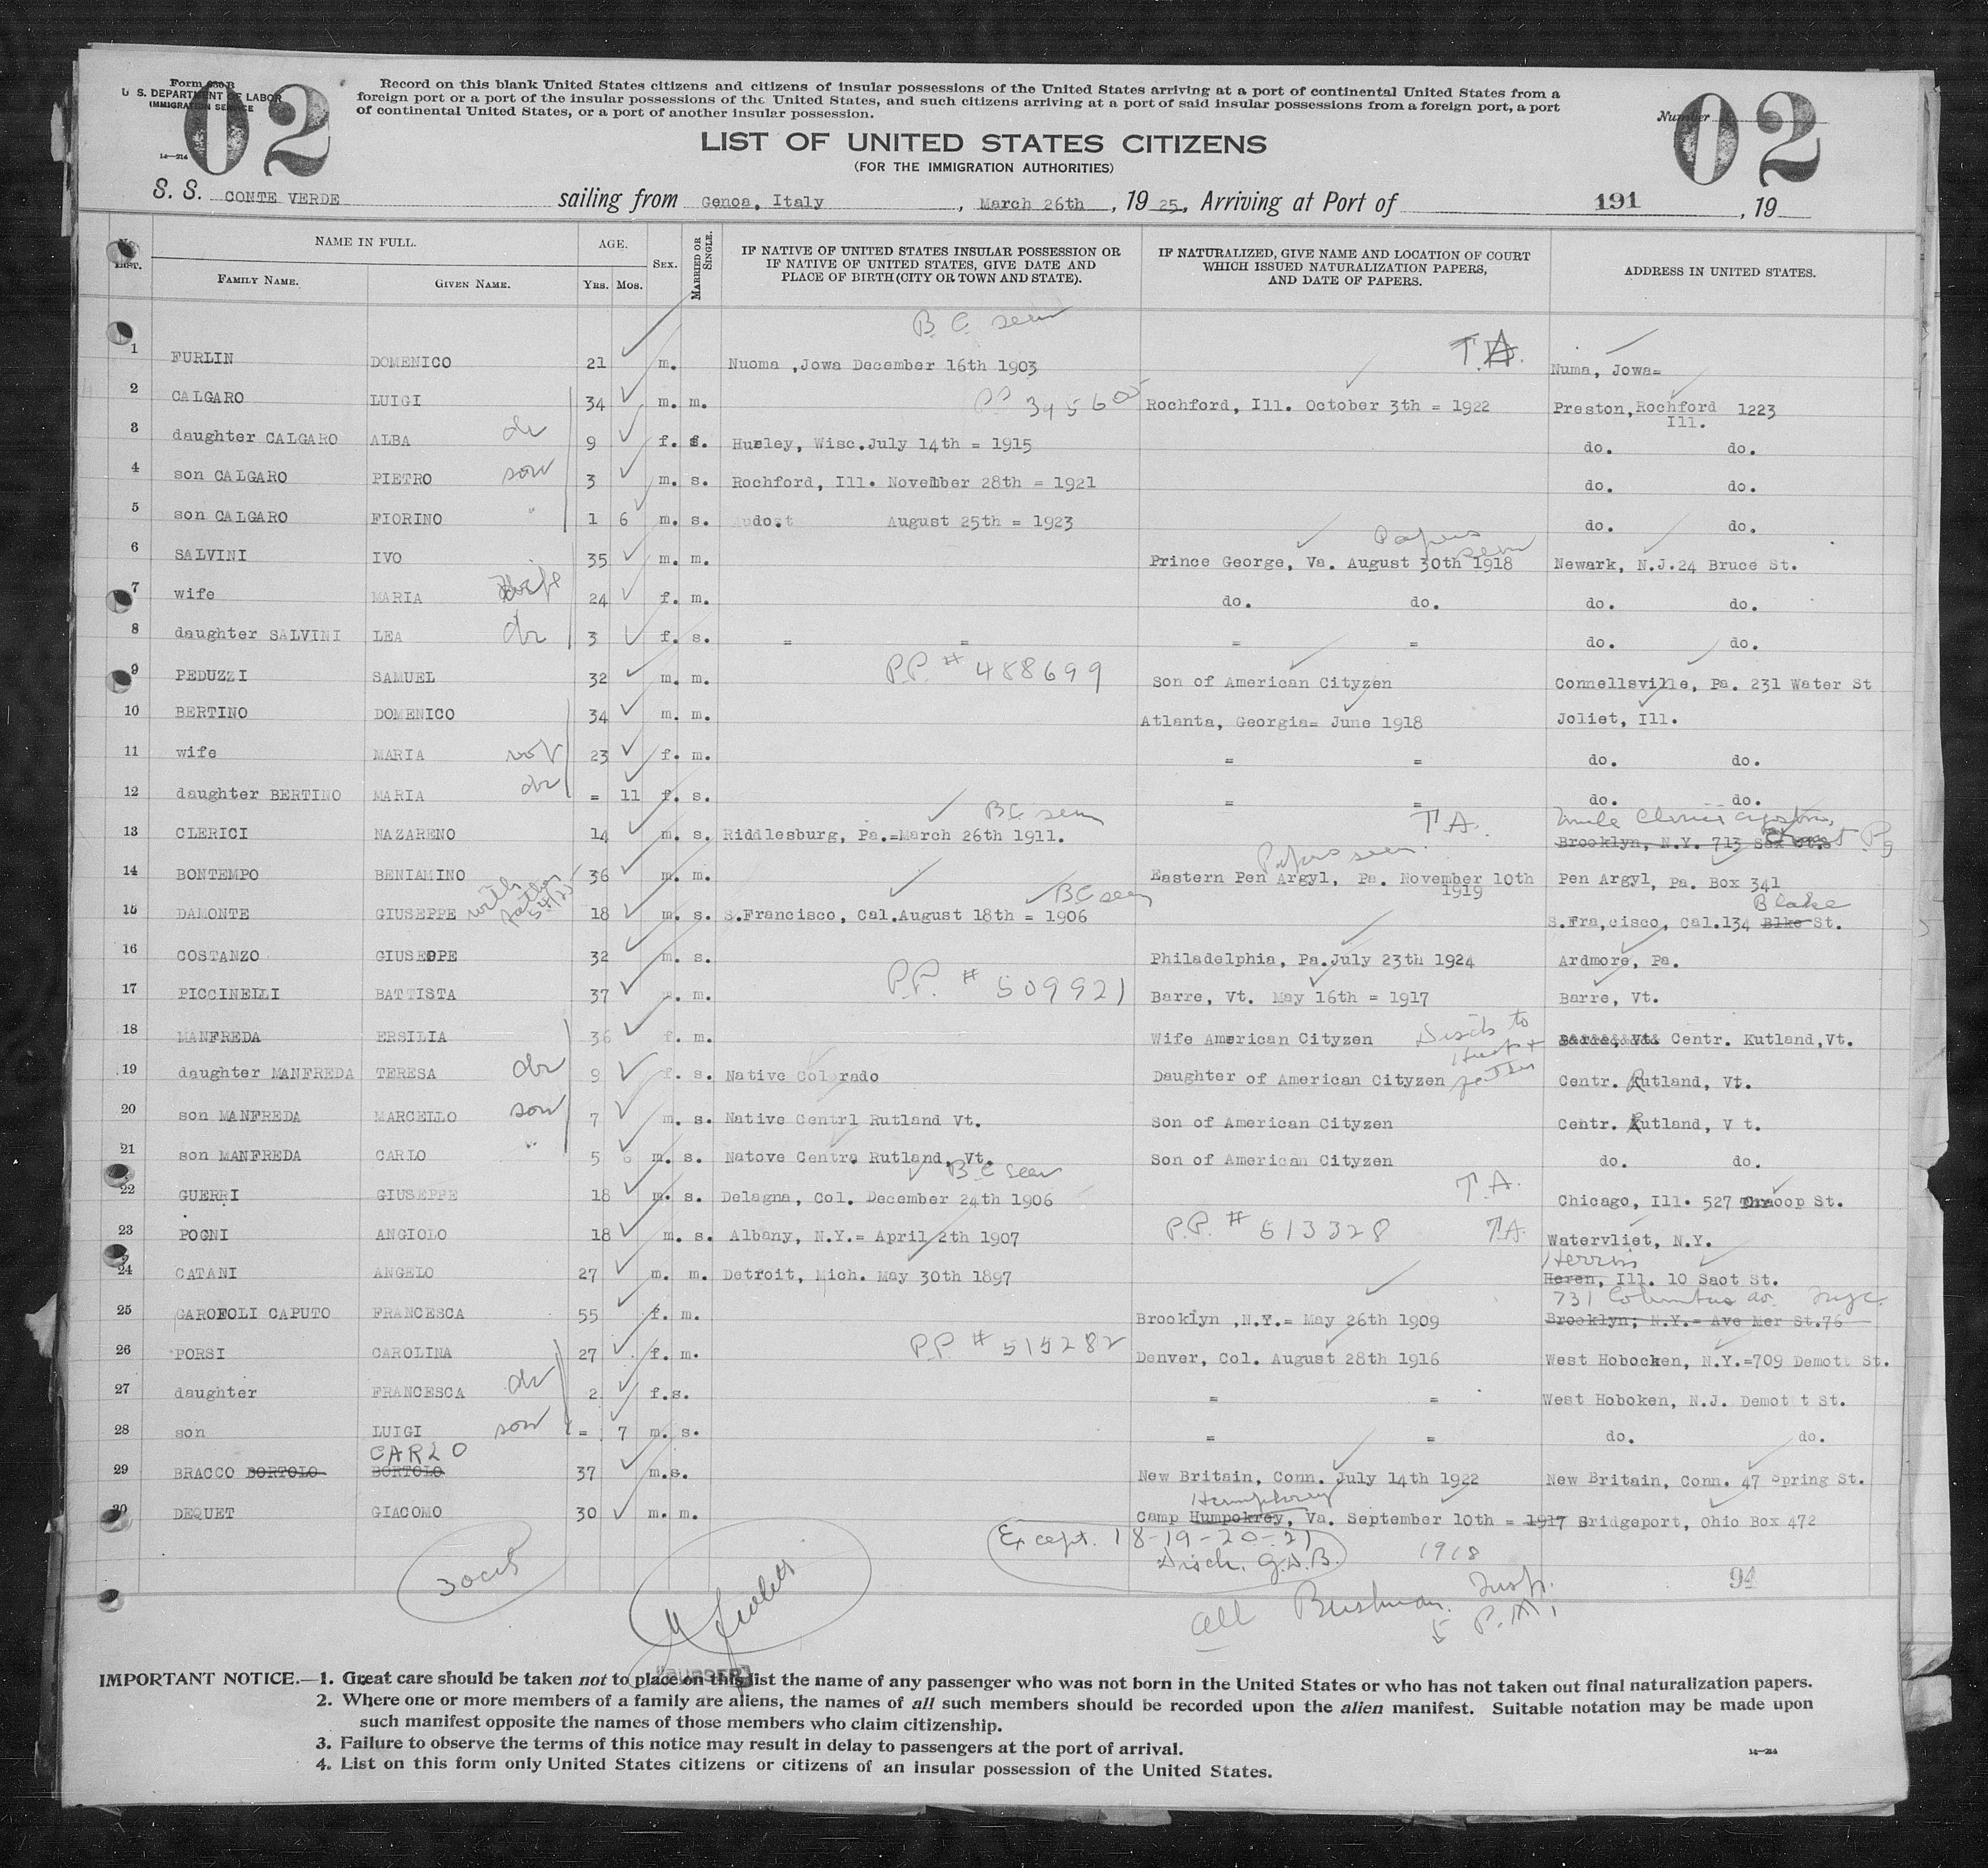 Form 630 B
U. S. DEPARTMENT OF LABOR
IMMIGRATION SERVICE
02
14—214
Record on this blank United States citizens and citizens of insular possessions of the United States arriving at a port of continental United States from a
foreign port or a port of the insular possessions of the United States, and such citizens arriving at a port of said insular possessions from a foreign port, a port
of continental United States, or a port of another insular possession.
Number
02
LIST OF UNITED STATES CITIZENS
(FOR THE IMMIGRATION AUTHORITIES)
S. S. CONTE VERDE sailing from Genoa, Italy, March 26th, 19 25, Arriving at Port of 191, 19
No. LIST. NAME IN FULL. AGE. SEX. MARRIED OR SINGLE. IF NATIVE OF UNITED STATES INSULAR POSSESSION OR IF NATIVE OF UNITED STATES, GIVE DATE AND PLACE OF BIRTH (CITY OR TOWN AND STATE). IF NATURALIZED, GIVE NAME AND LOCATION OF COURT WHICH ISSUED NATURALIZATION PAPERS, AND DATE OF PAPERS. ADDRESS IN UNITED STATES.
FAMILY NAME. GIVEN NAME. YRS. MOS.
B. C. seen
1 FURLIN DOMENICO 21 m. Nuoma ,Jowa December 16th 1903 T.A. Numa, Jowa=
2 CALGARO LUIGI 34 m. m. PP 345605 Rochford, Ill. October 3th = 1922 Preston, Rochford 1223
Ill.
3 daughter CALGARO ALBA dr 9 f. s. Hurley, Wisc.July 14th = 1915 do. do.
4 son CALGARO PIETRO son 3 m. s. Rochford, Ill. November 28th = 1921 do. do.
5 son CALGARO FIORINO " 1 6 m. s. do. August 25th = 1923 do. do.
Papers seen
6 SALVINI IVO 35 m. m. Prince George, Va. August 30th 1918 Newark, N.J.24 Bruce St.
7 wife MARIA wife 24 f. m. do. do. do. do.
8 daughter SALVINI LEA dr 3 f. s. = = = = do. do.
9 PEDUZZI SAMUEL 32 m. m. P.P. # 488699 Son of American Cityzen Connellsville, Pa. 231 Water St
10 BERTINO DOMENICO 34 m. m. Atlanta, Georgia= June 1918 Joliet, Ill.
11 wife MARIA 23 f. m. = = do. do.
12 daughter BERTINO MARIA dr = 11 f. s. = = do. do.
BC seen T.A.
13 CLERICI NAZARENO 14 m. s. Riddlesburg, Pa.=March 26th 1911. Brooklyn, N.Y. 713
Papers seen
14 BONTEMPO BENIAMINO 36 m. m. Eastern Pen Argyl, Pa. November 10th Pen Argyl, Pa. Box 341
1919
with father BC seen Blake
15 DAMONTE GIUSEPPE 18 m. s. S.Francisco, Cal.August 18th = 1906 S.Fra,cisco, Cal.134 Blke St.
16 COSTANZO GIUSEPPE 32 m. s. Philadelphia, Pa.July 23th 1924 Ardmore, Pa.
17 PICCINELLI BATTISTA 37 m. m. P.P. # 509921 Barre, Vt. May 16th = 1917 Barre, Vt.
18 MANFREDA ERSILIA 36 f. m. Wife American Cityzen Disch to Husb + father Barre, Vt. Centr. Kutland,Vt.
19 daughter MANFREDA TERESA dr 9 f. s. Native Colorado Daughter of American Cityzen Centr. Rutland, Vt.
20 son MANFREDA MARCELLO son 7 m. s. Native Centrl Rutland Vt. Son of American Cityzen Centr. Rutland, V t.
21 son MANFREDA CARLO " 5 6 m. s. Natove Centra Rutland, Vt. Son of American Cityzen do. do.
B C seen T.A.
22 GUERRI GIUSEPPE 18 m. s. Delagna, Col. December 24th 1906 Chicago, Ill. 527 Thraoop St.
23 POGNI ANGIOLO 18 m. s. Albany, N.Y.= April 2th 1907 P.P. # 513328 T.A. Watervliet, N.Y.
Herrin
24 CATANI ANGELO 27 m. m. Detroit, Mich. May 30th 1897 Heren, Ill. 10 Saot St.
731 Columbus av. nyc.
25 GAROFOLI CAPUTO FRANCESCA 55 f. m. Brooklyn ,N.Y.= May 26th 1909 Brooklyn; N.Y.= Ave Mer St.76
26 PORSI CAROLINA 27 f. m. P.P. # 515282 Denver, Col. August 28th 1916 West Hobocken, N.Y.=709 Demott St.
27 daughter FRANCESCA dr 2 f.s. = = West Hoboken, N.J. Demott St.
28 son LUIGI son = 7 m. s. = = do. do.
CARLO
29 BRACCO BORTOLO BORTOLO 37 m.s. New Britain, Conn. July 14th 1922 New Britain, Conn. 47 Spring St.
Humphrey
30 DEQUET GIACOMO 30 m. m. Camp Humpokrey, Va. September 10th = 1917 Bridgeport, Ohio Box 472
1918
Except. 18-19-20-21
Disch. G.A.B.
94
30 cit
all Bushman Insp.
5 P.M.
IMPORTANT NOTICE.—1. Great care should be taken not to place on this list the name of any passenger who was not born in the United States or who has not taken out final naturalization papers.
2. Where one or more members of a family are aliens, the names of all such members should be recorded upon the alien manifest. Suitable notation may be made upon
such manifest opposite the names of those members who claim citizenship.
3. Failure to observe the terms of this notice may result in delay to passengers at the port of arrival.
4. List on this form only United States citizens or citizens of an insular possession of the United States.
14—214